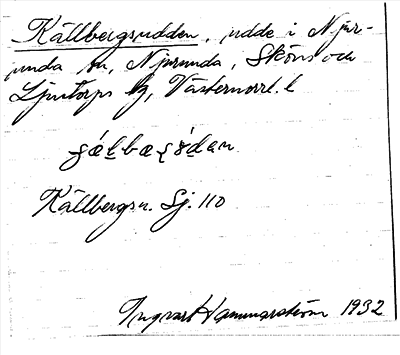 Källbergsudden, udde i Njur-
unda sn, Njurunda, Sköns och
Ljustorps tg, Västernorrl. l
Källbergsu. Sj. 110
Ingvar Hammarström 1932